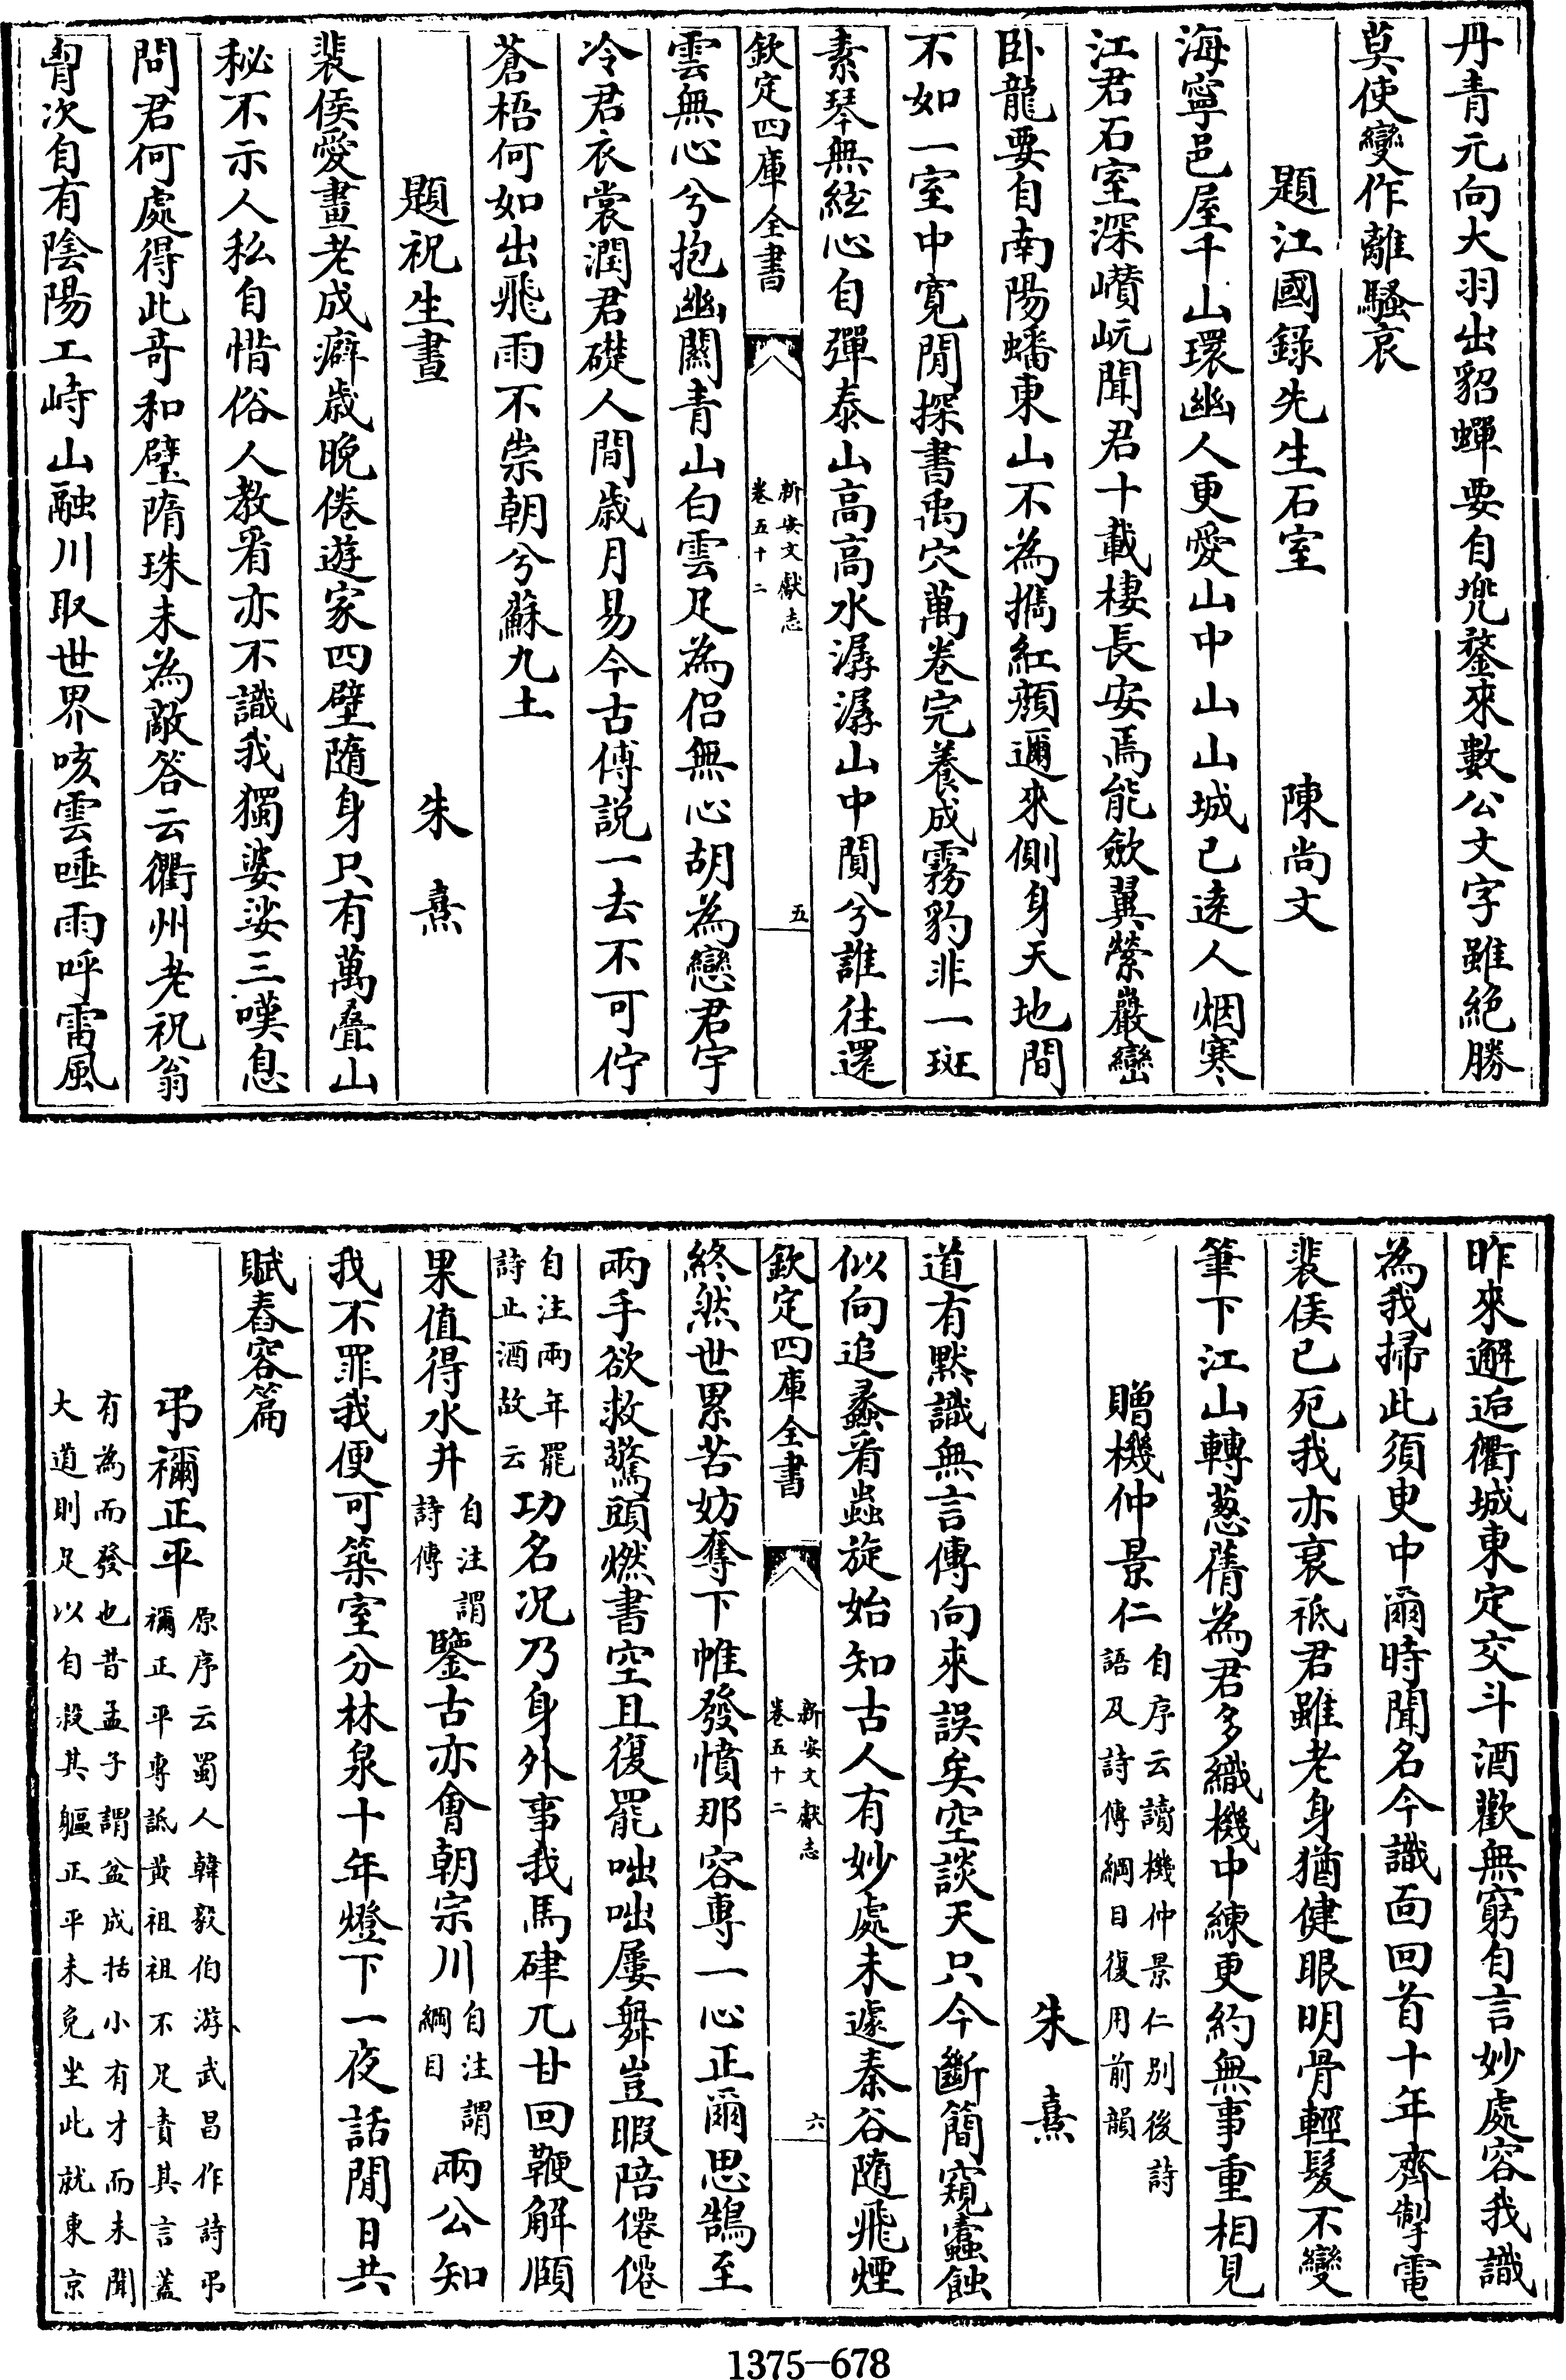 丹青元向大羽出貂蟬要自兠鍪來數公文字雖絶勝
莫使變作離騷哀
題江國錄先生石室 陳尚文
海寧邑屋千山環幽人更愛山中山山城已逺人烟寒
江君石室深巑岏聞君十載棲長安焉能斂翼縈巖巒
卧龍要自南陽蟠東山不為擕紅顔邇來側身天地間
不如一室中寛閒探書禹穴萬卷完養成霧豹非一斑
素琴無絃心自彈泰山高高水潺潺山中閴兮誰往還
欽定四庫全書
新安文獻志
卷五十二
五
雲無心兮抱幽關青山白雲足為侶無心胡為戀君宇
冷君衣裳潤君礎人間歲月易今古傅説一去不可佇
蒼梧何如出飛雨不崇朝兮蘇九土
題祝生畫 朱熹
裴侯愛畫老成癖歲晩倦遊家四壁隨身只有萬疊山
秘不示人私自惜俗人教看亦不識我獨婆娑三嘆息
問君何處得此奇和璧隋珠未為敵答云衢州老祝翁
胷次自有陰陽工峙山融川取世界咳雲唾雨呼雷風
昨來邂逅衢城東定交斗酒歡無窮自言妙處容我識
為我掃此須臾中爾時聞名今識面回首十年齊掣電
裴侯已死我亦衰祗君雖老身猶健眼明骨輕髮不變
筆下江山轉葱蒨為君多織機中練更約無事重相見
贈機仲景仁自序云讀機仲景仁别後詩
語及詩傳綱目復用前韻
朱熹
道有默識無言傳向來誤矣空談天只今斷簡窺蠧蝕
似向追蠡看蟲旋始知古人有妙處未遽秦谷随飛煙
欽定四庫全書
新安文獻志
卷五十二
六
終然世累苦妨奪下帷發憤那容專一心正爾思鵠至
兩手欲救驚頭燃書空且復罷咄咄屢舞豈暇陪僊僊
自注兩年罷
詩止酒故云
功名况乃身外事我馬硉兀甘回鞭解頤
果值得水井自注謂
詩傳
鑒古亦會朝宗川自注謂
綱目
兩公知
我不罪我便可築室分林泉十年燈下一夜話閒日共
賦春容篇
弔禰正平原序云蜀人韓毅伯游武昌作詩弔
禰正平專詆黄祖祖不足責其言蓋
有為而發也昔孟子謂盆成括小有才而未聞
大道則足以自殺其軀正平未免坐此就東京
1375－678